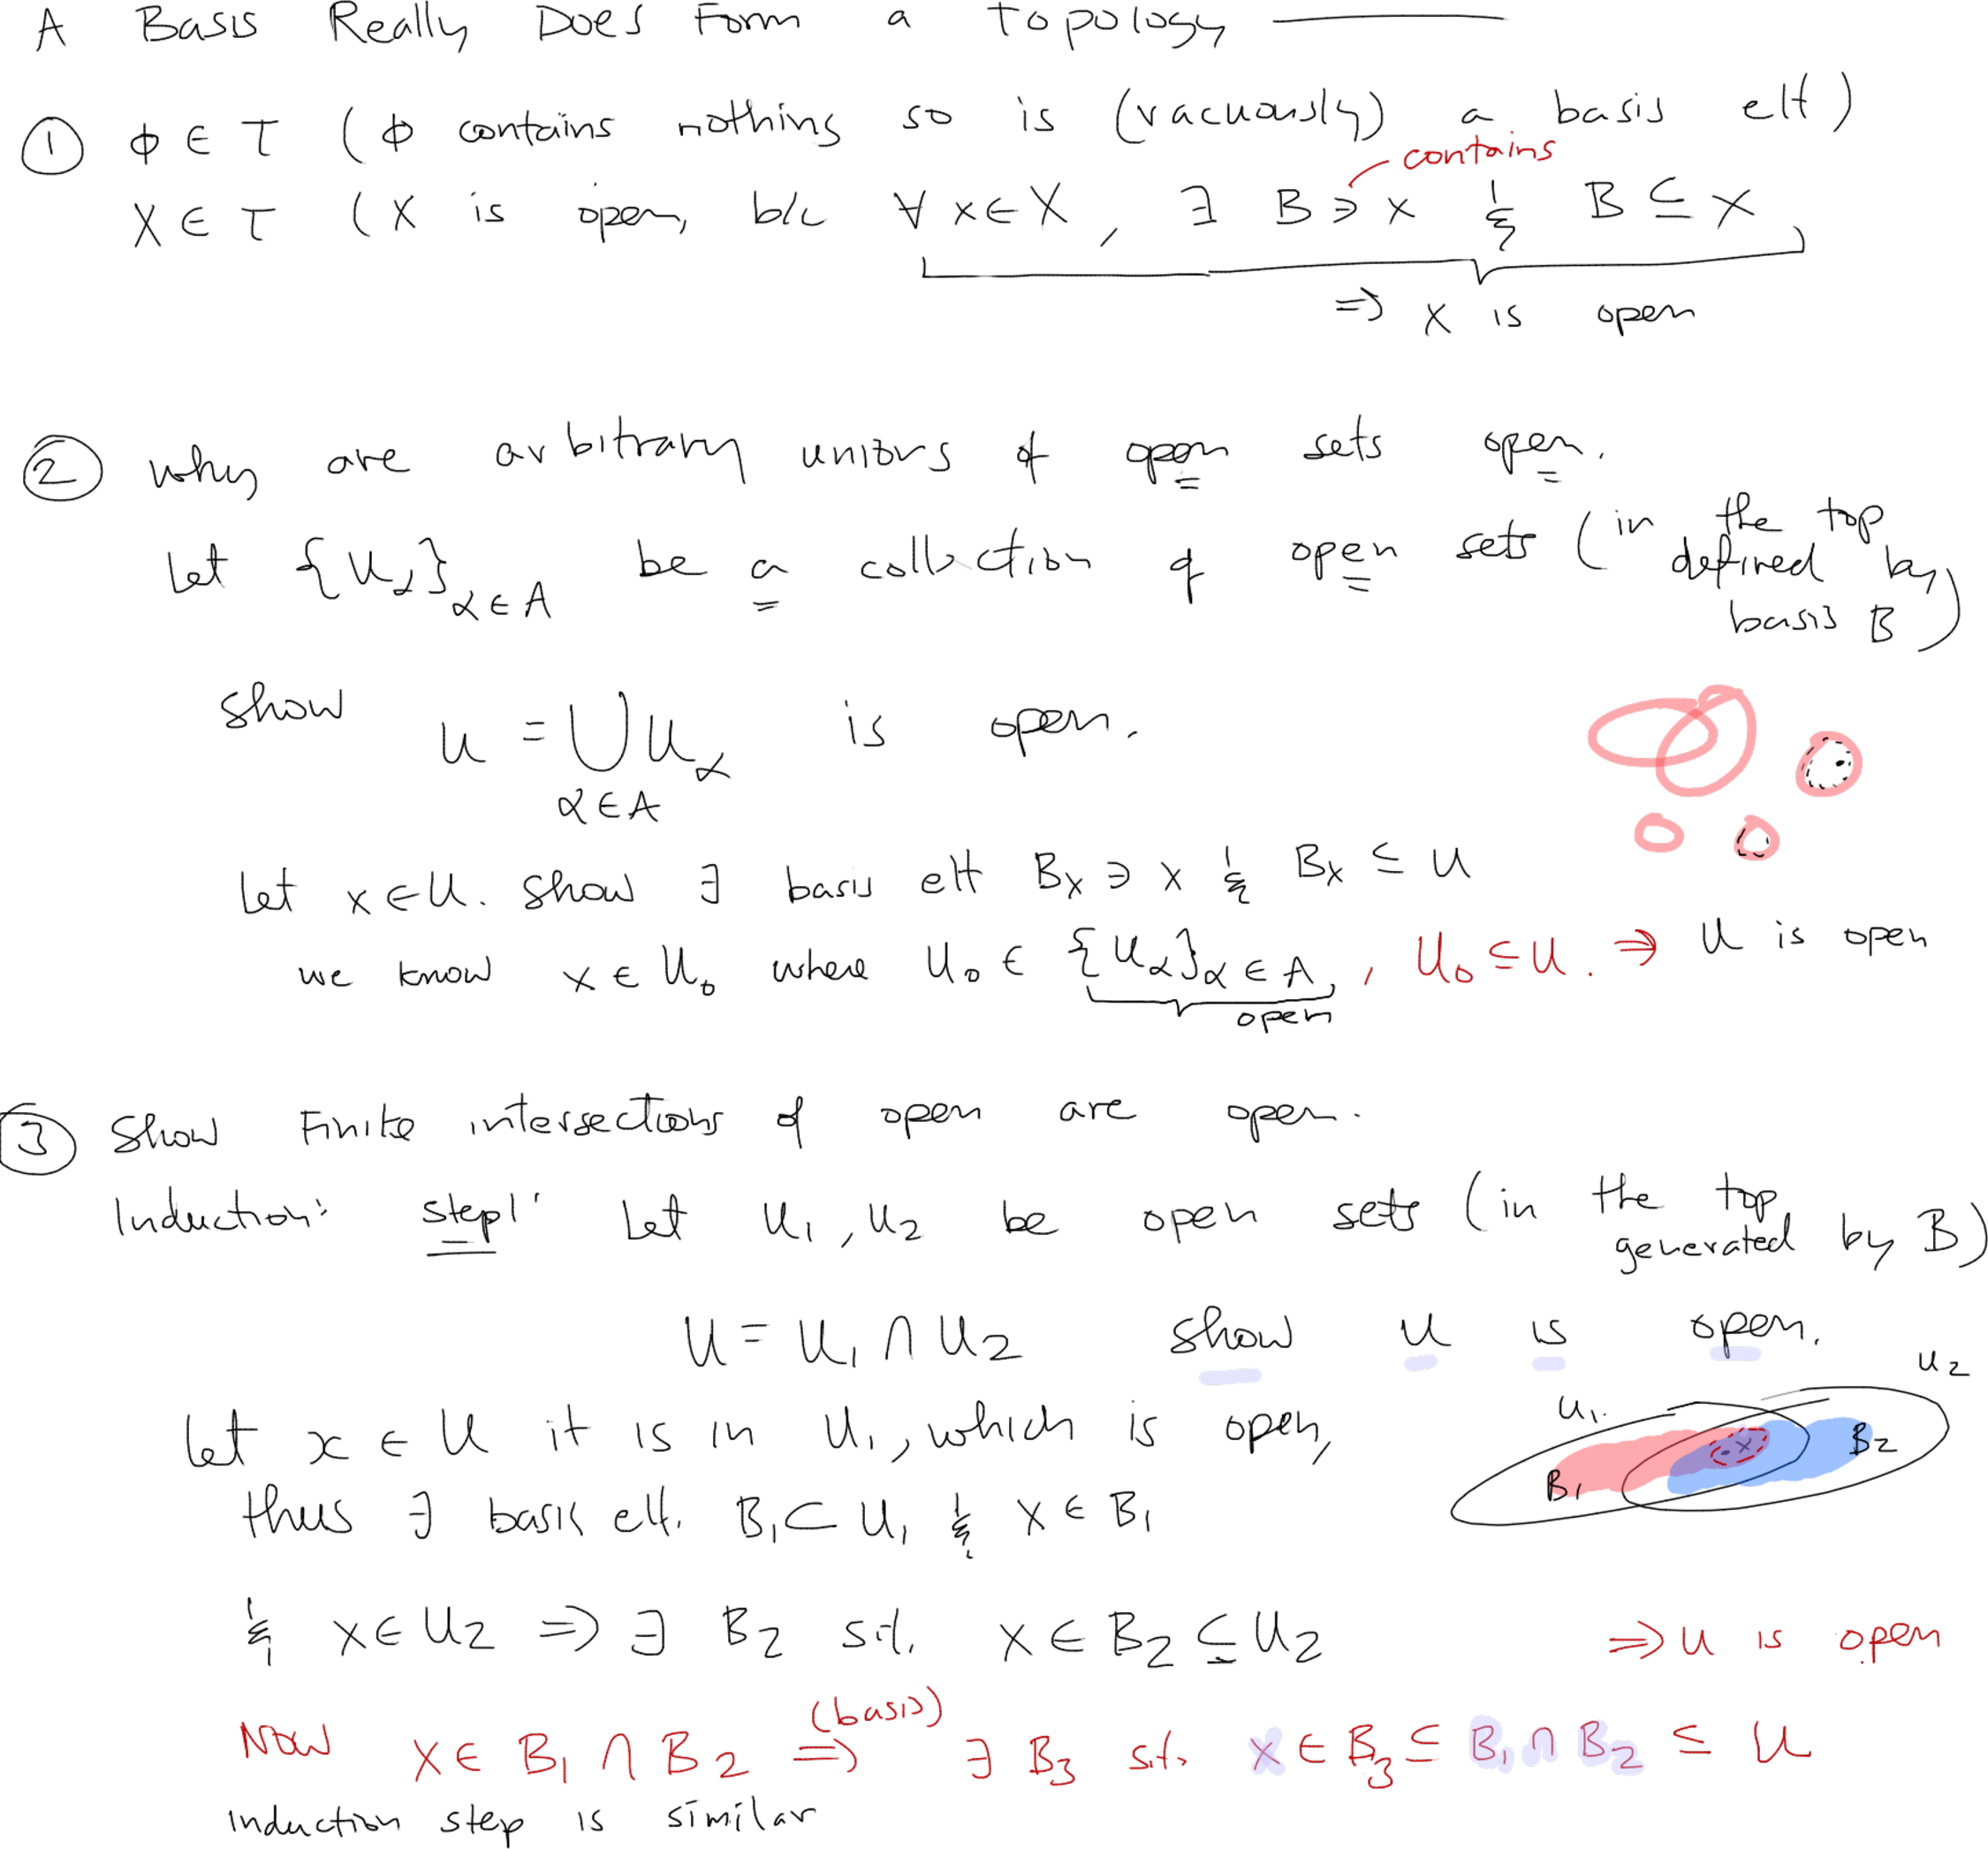 A Basis Really Does Form a Topology
① ϕ ∈ T (ϕ contains nothing so is (vacuously) a basis elt)
contains
X ∈ T (X is open, b/c ∀ x ∈ X, ∃ B ∋ x & B ⊆ X
⇒ X is open
② why are arbitrary unions of open sets open.
Let {U_α}_{α ∈ A} be a collection of open sets (in the top defined by basis B)
show U = ⋃_{α ∈ A} U_α is open.
Let x ∈ U. show ∃ basis elt B_x ∋ x & B_x ⊆ U
we know x ∈ U_0 where U_0 ∈ {U_α}_{α ∈ A}, U_0 ⊆ U. ⇒ U is open
open
③ Show Finite intersections of open are open.
Induction: step 1: Let U_1, U_2 be open sets (in the top generated by B)
U = U_1 ∩ U_2 show U is open.
U_2
U_1
Let x ∈ U it is in U_1, which is open,
B_2
B_1
thus ∃ basis elt. B_1 ⊂ U_1 & x ∈ B_1
& x ∈ U_2 ⇒ ∃ B_2 s.t. x ∈ B_2 ⊆ U_2 ⇒ U is open
(basis)
Now x ∈ B_1 ∩ B_2 ⇒ ∃ B_3 s.t. x ∈ B_3 ⊆ B_1 ∩ B_2 ⊆ U
induction step is similar